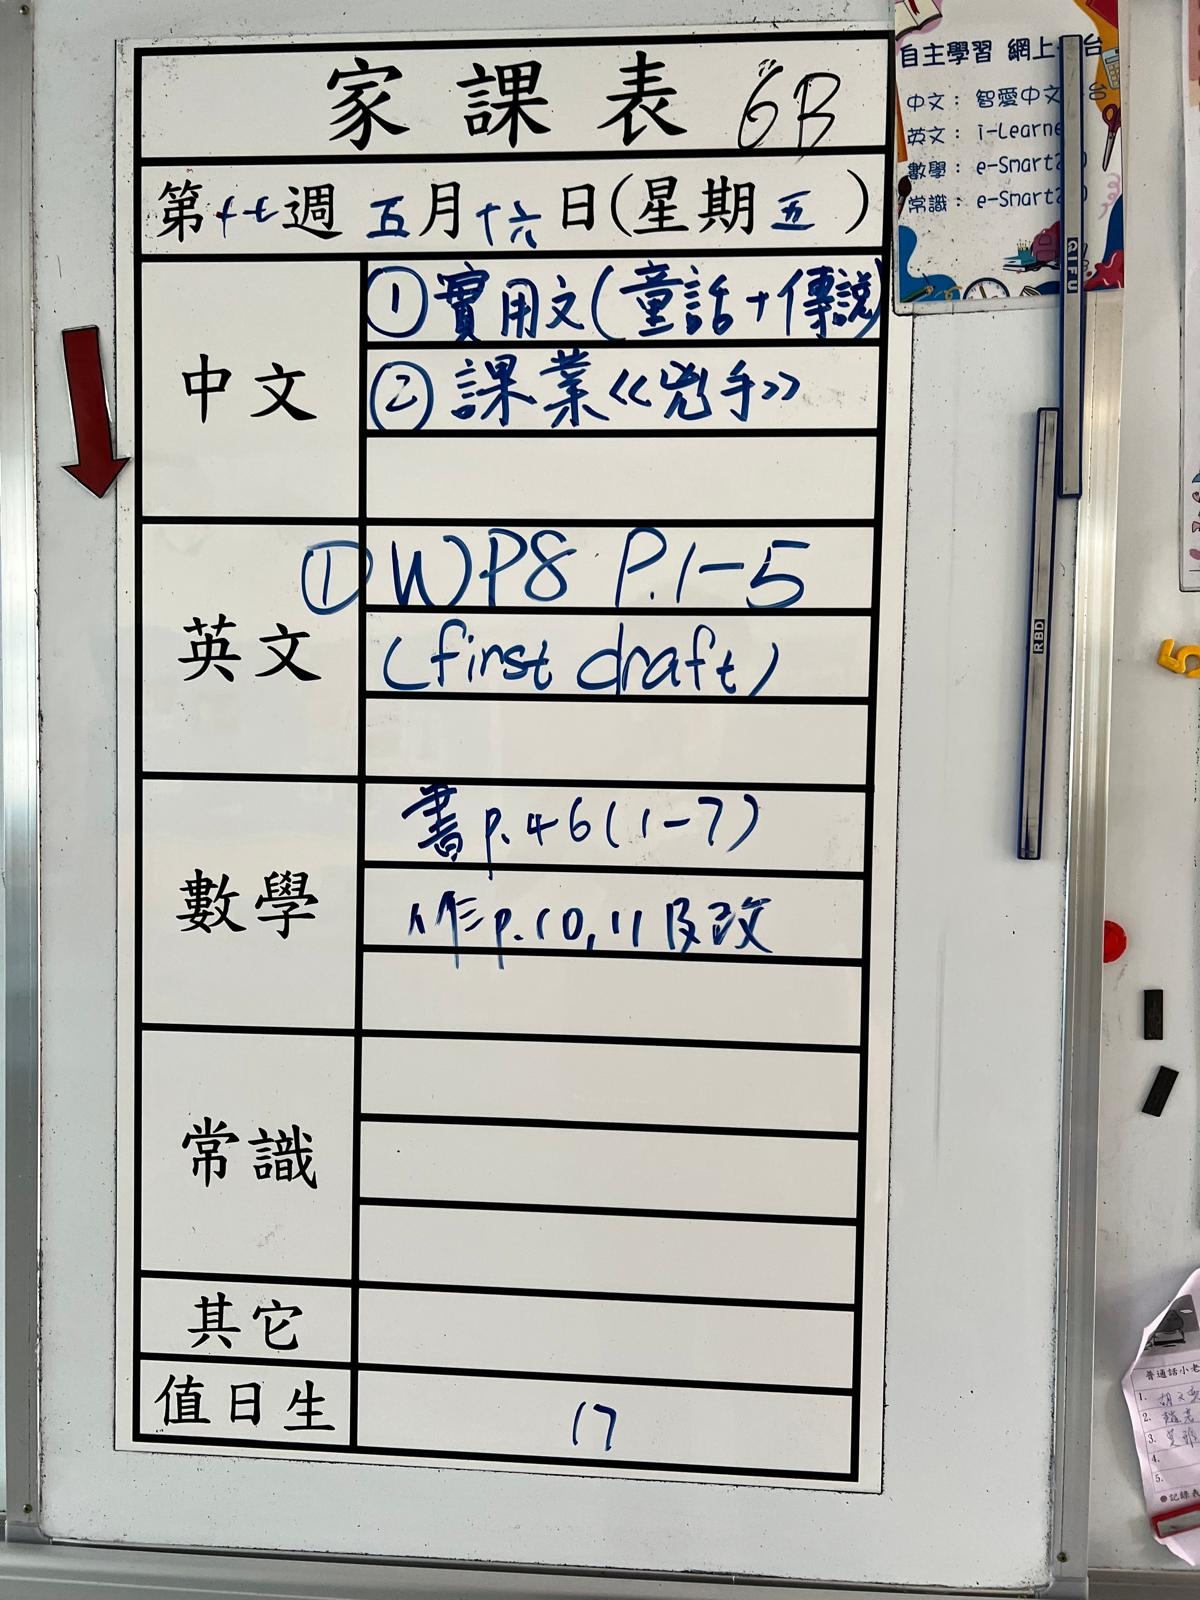 家課表 6B
第十七週 五月十六日(星期五)
中文
①實用文(童話+傳説)
②課業《兇手》
英文
① WP8 P.1-5
(first draft)
數學
書p.46(1-7)
作p.10,11及改
常識
其它
值日生
17
自主學習 網上
中文: 智愛中文 台
英文: i-Learne
數學: e-Smart
常識: e-Smart
QIFU
RBD
5
普通話小老
1.
2.
3.
4.
5.
記錄表